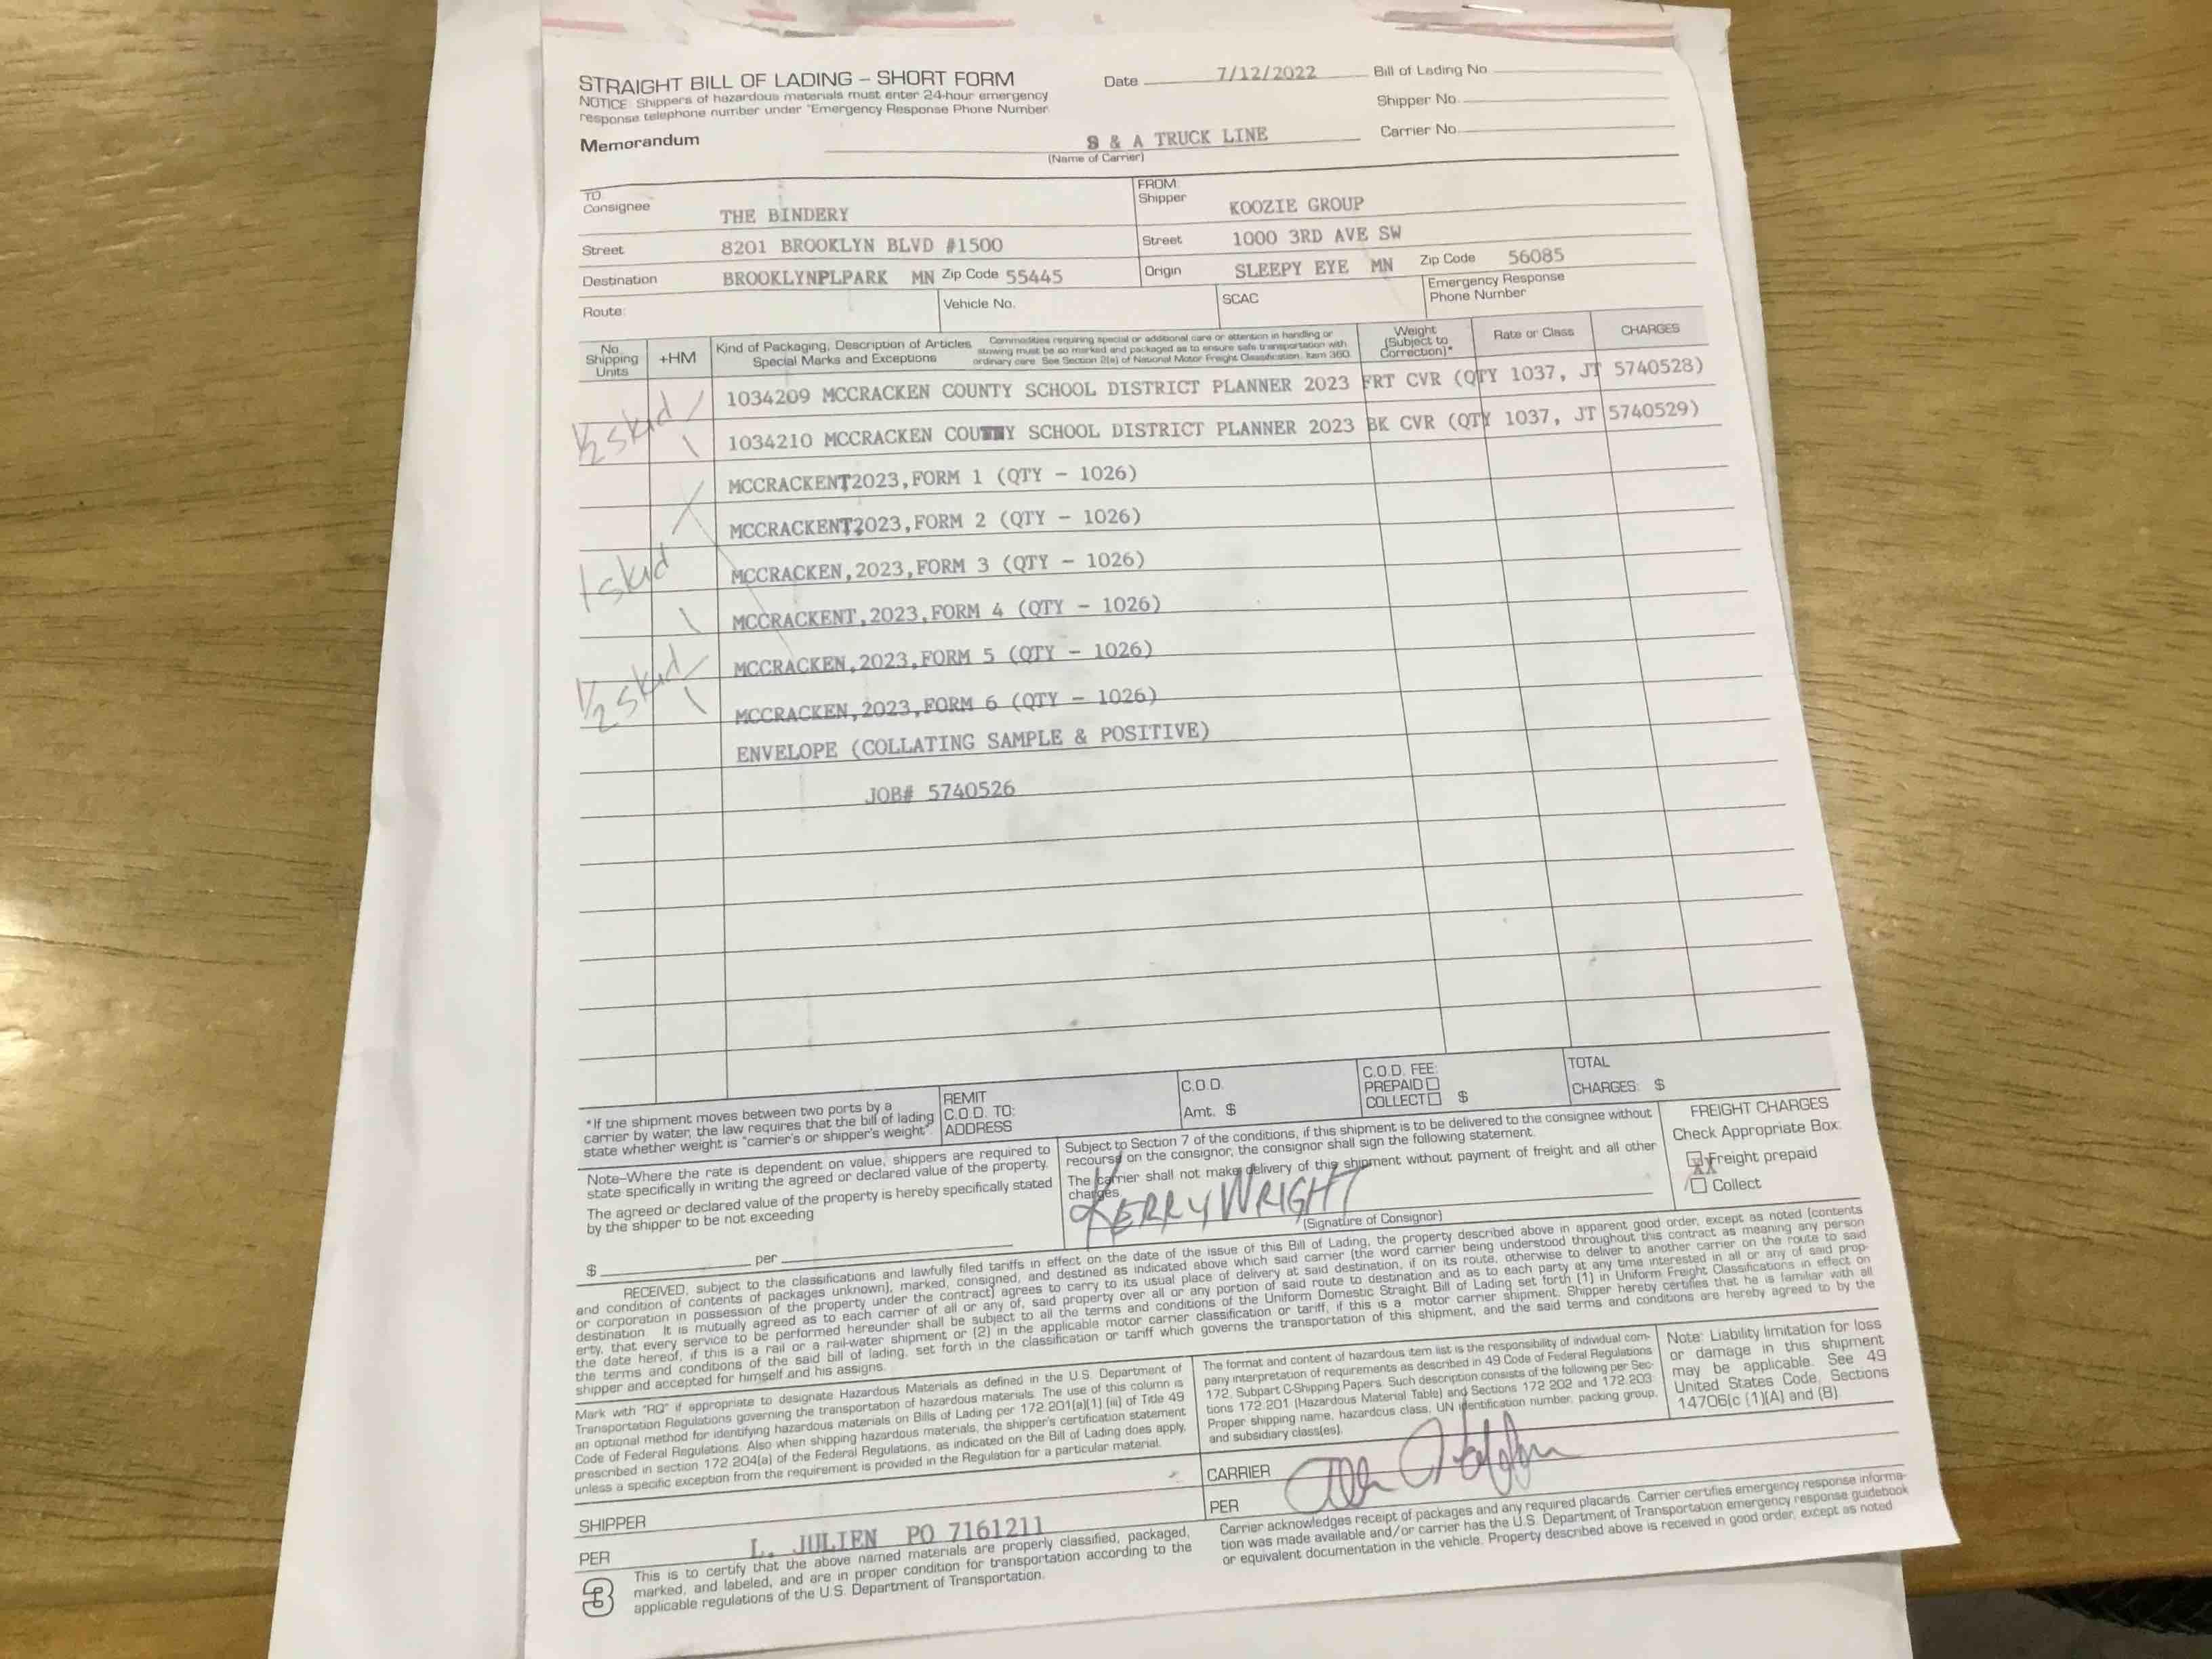 STRAIGHT BILL OF LADING – SHORT FORM
NOTICE Shippers of hazardous materials must enter 24-hour emergency
response telephone number under "Emergency Response Phone Number
Date 7/12/2022
Bill of Lading No.
Shipper No.
Carrier No.
Memorandum
S & A TRUCK LINE
(Name of Carrier)
TO
Consignee THE BINDERY
Street 8201 BROOKLYN BLVD #1500
Destination BROOKLYNPLPARK MN Zip Code 55445
FROM
Shipper KOOZIE GROUP
Street 1000 3RD AVE SW
Origin SLEEPY EYE MN Zip Code 56085
Route:
Vehicle No.
SCAC
Emergency Response
Phone Number
No.
Shipping
Units
+HM
Kind of Packaging, Description of Articles
Special Marks and Exceptions
Commodities requiring special or additional care or attention in handling or
stowing must be so marked and packaged as to ensure safe transportation with
ordinary care. See Section 2(e) of National Motor Freight Classification, Item 360.
Weight
(Subject to
Correction)*
Rate or Class
CHARGES
1034209 MCCRACKEN COUNTY SCHOOL DISTRICT PLANNER 2023 FRT CVR (QTY 1037, JT 5740528)
½ skid
1034210 MCCRACKEN COUNTY SCHOOL DISTRICT PLANNER 2023 BK CVR (QTY 1037, JT 5740529)
MCCRACKENT2023,FORM 1 (QTY – 1026)
MCCRACKENT2023,FORM 2 (QTY – 1026)
1 skid
MCCRACKEN,2023,FORM 3 (QTY – 1026)
MCCRACKENT,2023,FORM 4 (QTY – 1026)
MCCRACKEN,2023,FORM 5 (QTY – 1026)
½ skid
MCCRACKEN,2023,FORM 6 (QTY – 1026)
ENVELOPE (COLLATING SAMPLE & POSITIVE)
JOB# 5740526
*If the shipment moves between two ports by a
carrier by water, the law requires that the bill of lading
state whether weight is "carrier's or shipper's weight".
REMIT
C.O.D. TO:
ADDRESS
C.O.D.
Amt. $
C.O.D. FEE:
PREPAID
COLLECT $
TOTAL
CHARGES: $
Note–Where the rate is dependent on value, shippers are required to
state specifically in writing the agreed or declared value of the property.
The agreed or declared value of the property is hereby specifically stated
by the shipper to be not exceeding
$ per
Subject to Section 7 of the conditions, if this shipment is to be delivered to the consignee without
recourse on the consignor, the consignor shall sign the following statement.
The carrier shall not make delivery of this shipment without payment of freight and all other
charges.
KERRY WRIGHT
(Signature of Consignor)
FREIGHT CHARGES
Check Appropriate Box:
Freight prepaid
Collect
RECEIVED, subject to the classifications and lawfully filed tariffs in effect on the date of the issue of this Bill of Lading, the property described above in apparent good order, except as noted (contents
and condition of contents of packages unknown), marked, consigned, and destined as indicated above which said carrier (the word carrier being understood throughout this contract as meaning any person
or corporation in possession of the property under the contract) agrees to carry to its usual place of delivery at said destination, if on its route, otherwise to deliver to another carrier on the route to said
destination. It is mutually agreed as to each carrier of all or any of, said property over all or any portion of said route to destination and as to each party at any time interested in all or any of said prop-
erty, that every service to be performed hereunder shall be subject to all the terms and conditions of the Uniform Domestic Straight Bill of Lading set forth (1) in Uniform Freight Classifications in effect on
the date hereof, if this is a rail or a rail-water shipment or (2) in the applicable motor carrier classification or tariff, if this is a motor carrier shipment. Shipper hereby certifies that he is familiar with all
the terms and conditions of the said bill of lading, set forth in the classification or tariff which governs the transportation of this shipment, and the said terms and conditions are hereby agreed to by the
shipper and accepted for himself and his assigns.
Mark with "RQ" if appropriate to designate Hazardous Materials as defined in the U.S. Department of
Transportation Regulations governing the transportation of hazardous materials. The use of this column is
an optional method for identifying hazardous materials on Bills of Lading per 172.201(a)(1) (iii) of Title 49
Code of Federal Regulations. Also when shipping hazardous materials, the shipper's certification statement
prescribed in section 172.204(a) of the Federal Regulations, as indicated on the Bill of Lading does apply,
unless a specific exception from the requirement is provided in the Regulation for a particular material.
The format and content of hazardous item list is the responsibility of individual com-
pany interpretation of requirements as described in 49 Code of Federal Regulations
172, Subpart C-Shipping Papers. Such description consists of the following per Sec-
tions 172.201 (Hazardous Material Table) and Sections 172.202 and 172.203:
Proper shipping name, hazardous class, UN identification number, packing group,
and subsidiary class(es).
Note: Liability limitation for loss
or damage in this shipment
may be applicable. See 49
United States Code, Sections
14706(c (1)(A) and (B).
SHIPPER
PER L. JULIEN PO 7161211
CARRIER
PER
3
This is to certify that the above named materials are properly classified, packaged,
marked, and labeled, and are in proper condition for transportation according to the
applicable regulations of the U.S. Department of Transportation.
Carrier acknowledges receipt of packages and any required placards. Carrier certifies emergency response informa-
tion was made available and/or carrier has the U.S. Department of Transportation emergency response guidebook
or equivalent documentation in the vehicle. Property described above is received in good order, except as noted